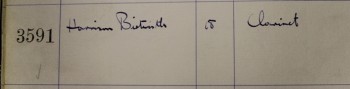 3591 Harrison Birtwistle 15 Clarinet